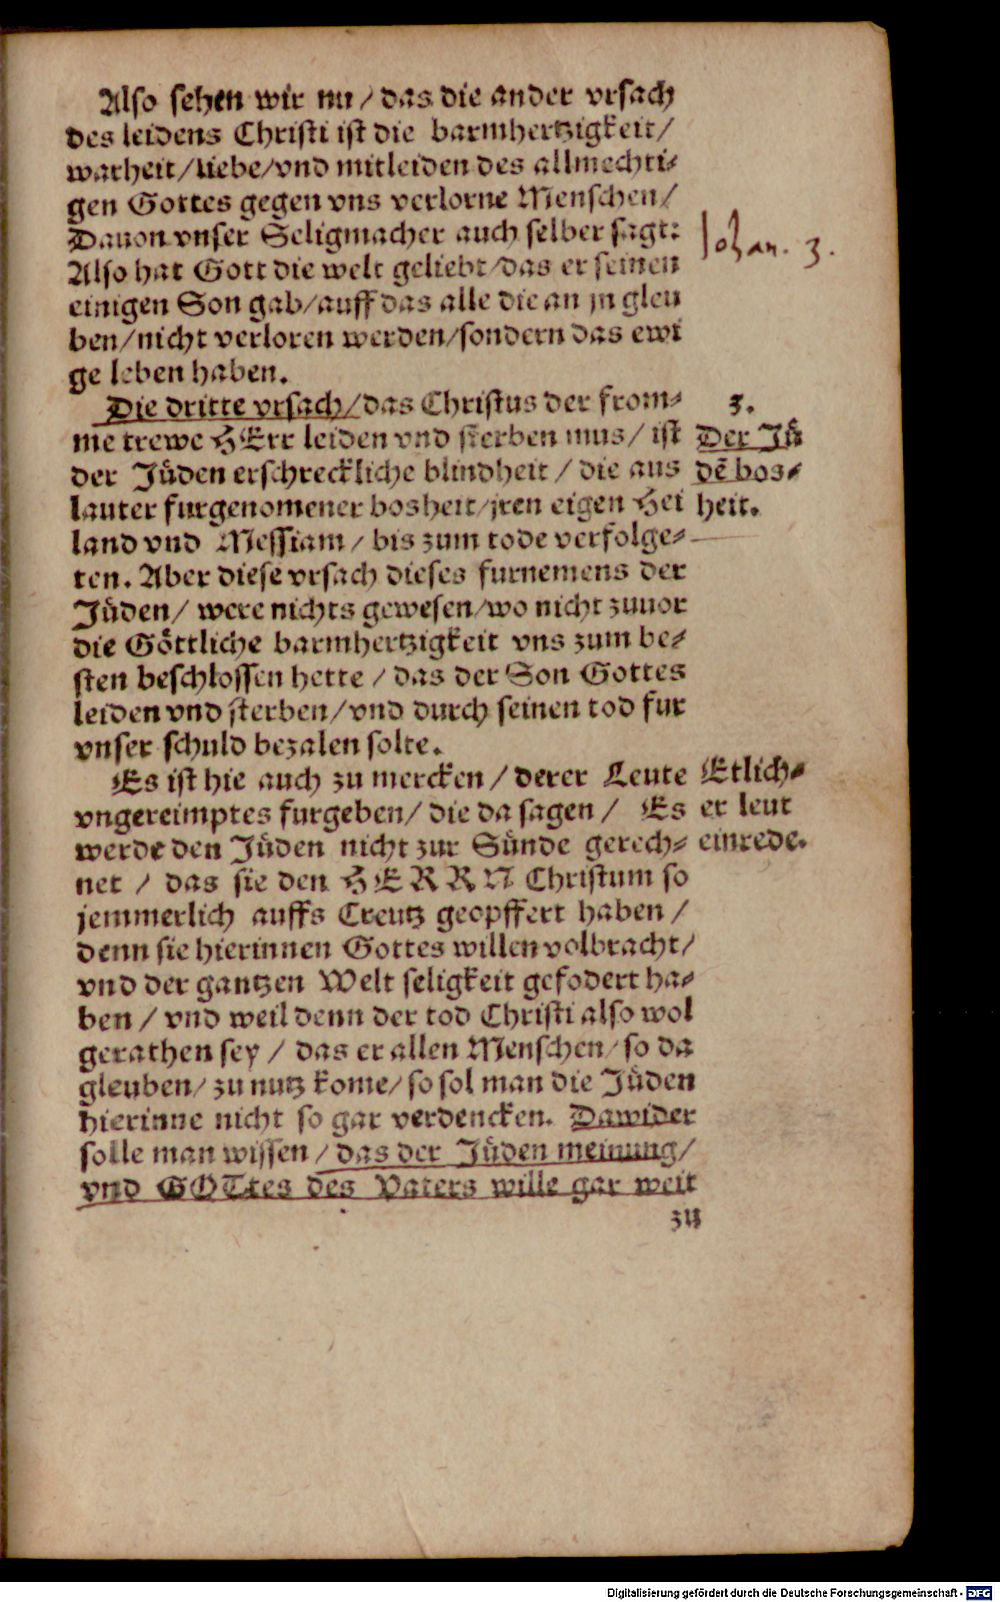 Also sehen wir nu / das die ander vrsach
des leidens Christi ist die barmhertzigkeit /
warheit / liebe / vnd mitleiden des allmechti-
gen Gottes gegen vns verlorne Menschen /
Dauon vnser Seligmacher auch selber sagt:
Johan. 3.
Also hat Gott die welt geliebt / das er seinen
einigen Son gab / auff das alle die an jn gleu
ben / nicht verloren werden / sondern das ewi
ge leben haben.
Die dritte vrsach / das Christus der from-
3.
me trewe HErr leiden vnd sterben mus / ist
Der Jü
der Jüden erschreckliche blindheit / die aus
dē bos-
lauter furgenomener bosheit / jren eigen Hei
heit.
land vnd Messiam / bis zum tode verfolge-
ten. Aber diese vrsach dieses furnemens der
Jüden / were nichts gewesen / wo nicht zuuor
die Göttliche barmhertzigkeit vns zum be-
sten beschlossen hette / das der Son Gottes
leiden vnd sterben / vnd durch seinen tod fur
vnser schuld bezalen solte.
Es ist hie auch zu mercken / derer Leute
Etlich-
vngereimptes furgeben / die da sagen / Es
er leut
werde den Jüden nicht zur Sünde gerech-
einrede.
net / das sie den HERRN Christum so
jemmerlich auffs Creutz geopffert haben /
denn sie hierinnen Gottes willen volbracht /
vnd der gantzen Welt seligkeit gefodert ha-
ben / vnd weil denn der tod Christi also wol
gerathen sey / das er allen Menschen / so da
gleuben / zu nutz kome / so sol man die Jüden
hierinne nicht so gar verdencken. Dawider
solle man wissen / das der Jüden meinung /
vnd GOTtes des Vaters wille gar weit
zu
Digitalisierung gefördert durch die Deutsche Forschungsgemeinschaft - DFG